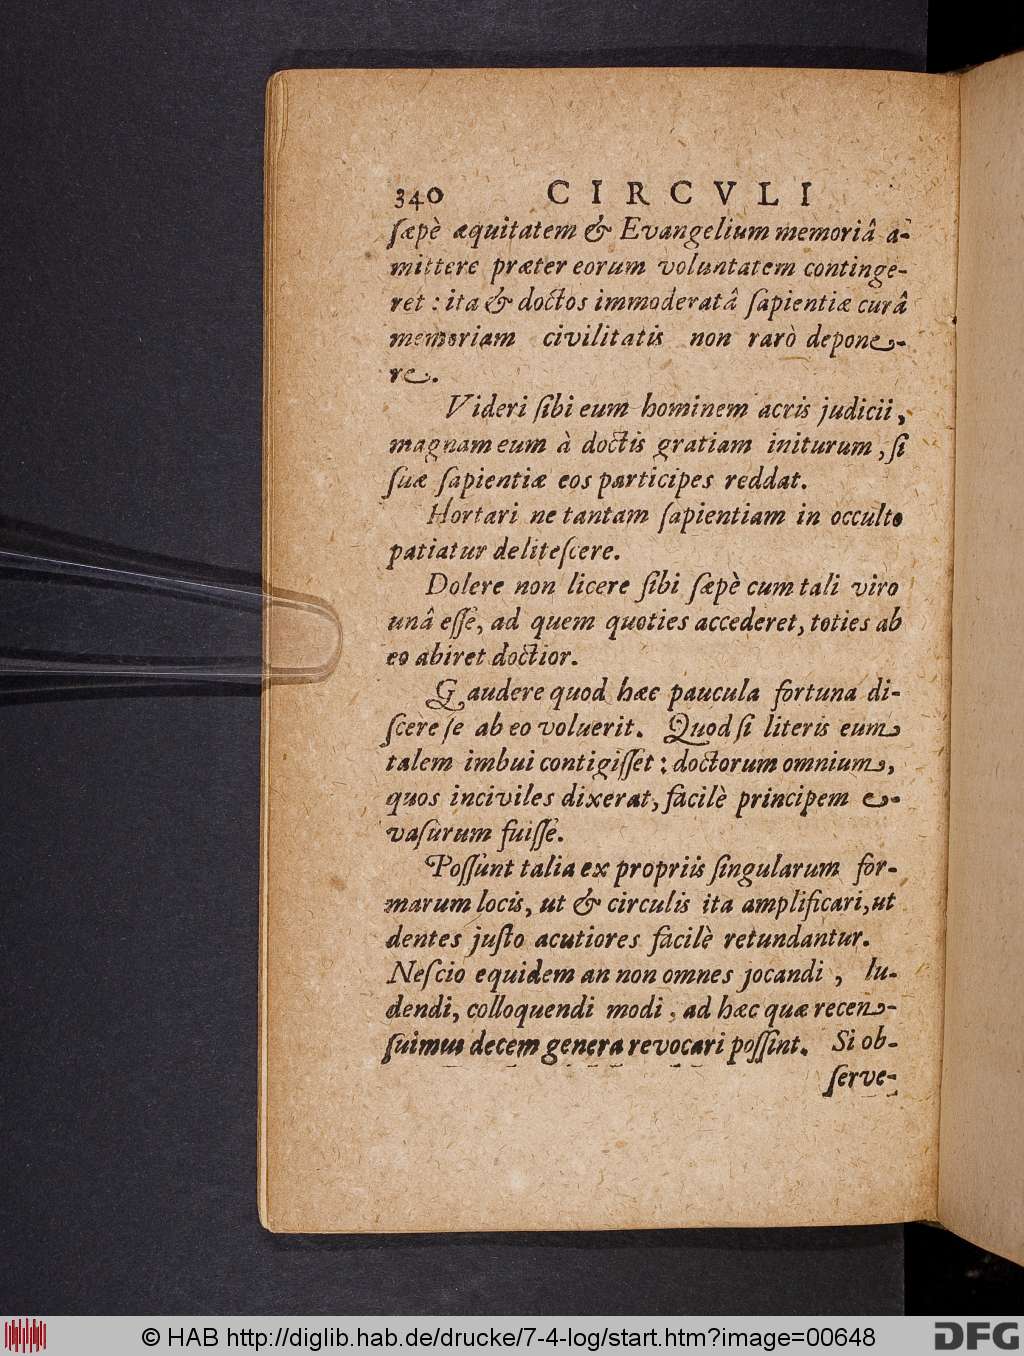 340 CIRCVLI
sæpè æquitatem & Evangelium memoriâ a-
mittere præter eorum voluntatem continge-
ret : ita & doctos immoderatâ sapientiæ curâ
memoriam civilitatis non rarò depone-
re.
Videri sibi eum hominem acris judicii,
magnam eum à doctis gratiam initurum, si
suæ sapientiæ eos participes reddat.
Hortari ne tantam sapientiam in occulto
patiatur delitescere.
Dolere non licere sibi sæpè cum tali viro
unâ esse, ad quem quoties accederet, toties ab
eo abiret doctior.
Gaudere quod hæc paucula fortuna di-
scere se ab eo voluerit. Quod si literis eum
talem imbui contigisset : doctorum omnium,
quos inciviles dixerat, facilè principem e-
vasurum fuisse.
Possunt talia ex propriis singularum for-
marum locis, ut & circulis ita amplificari, ut
dentes justo acutiores facilè retundantur.
Nescio equidem an non omnes jocandi, lu-
dendi, colloquendi modi, ad hæc quæ recen-
suimus decem genera revocari possint. Si ob-
serve-
© HAB http://diglib.hab.de/drucke/7-4-log/start.htm?image=00648
DFG